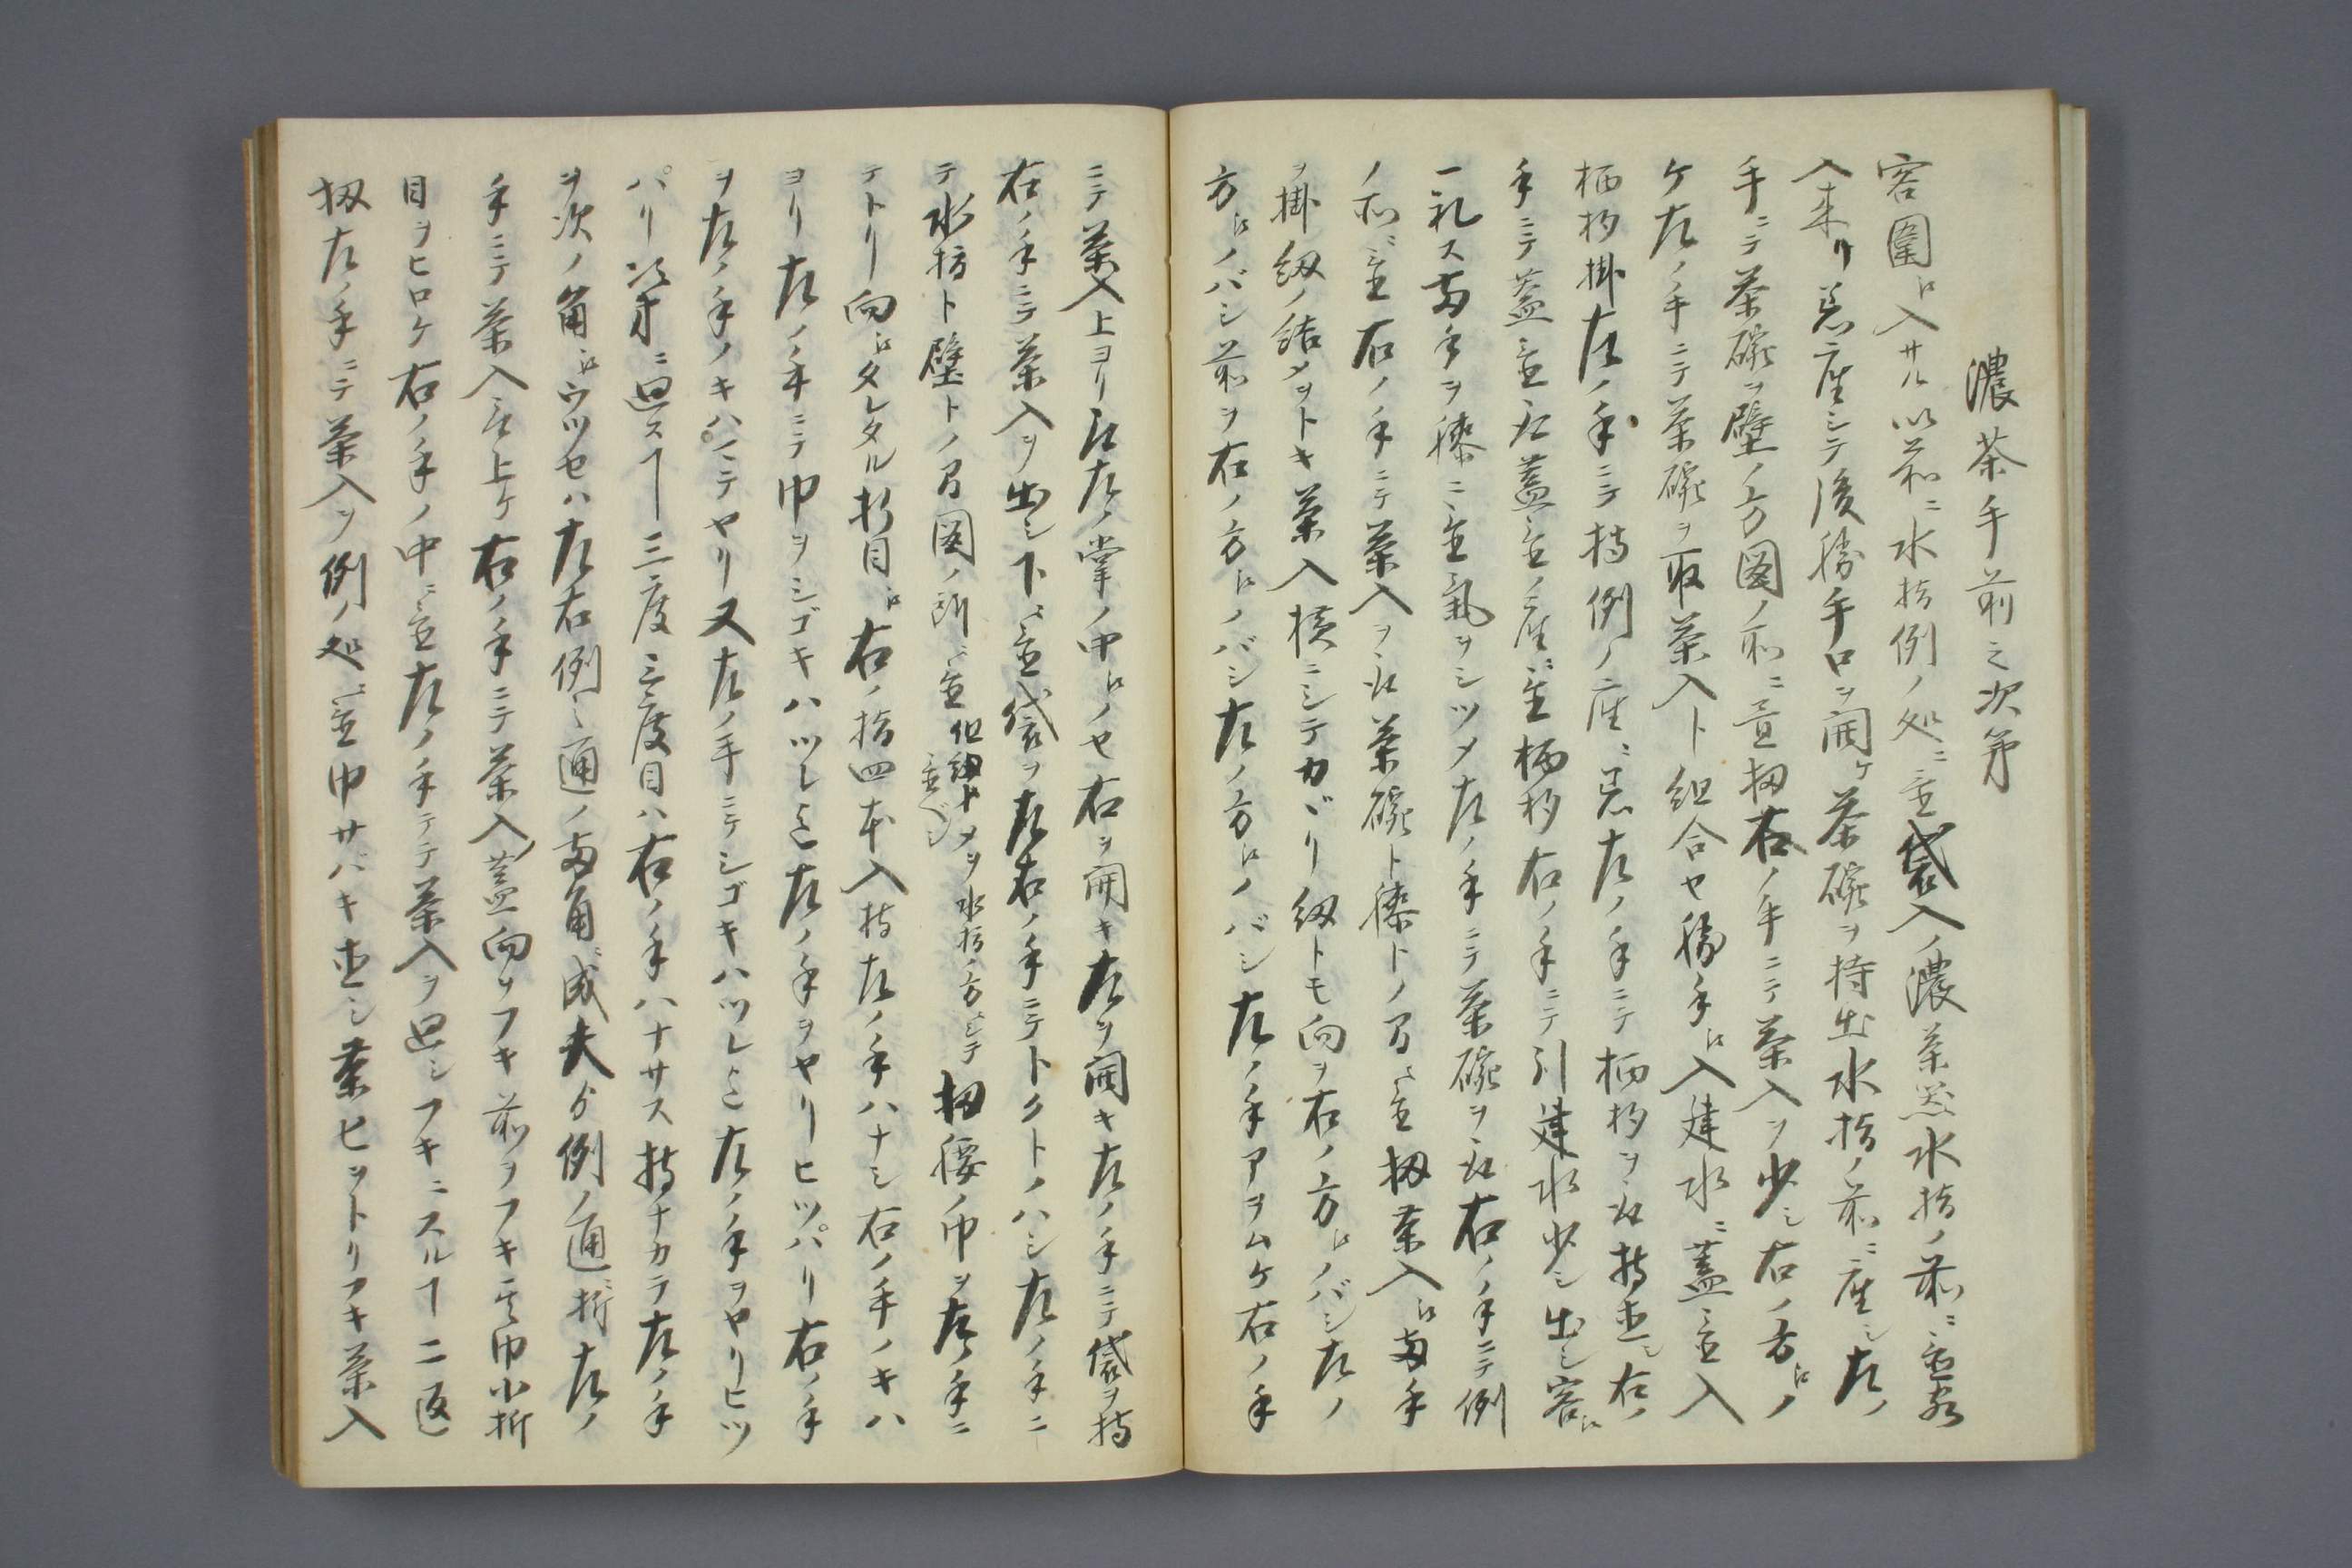 濃茶手前之次第
客圍ヘ入サル以前ニ水指例ノ処ニ置袋入ノ濃茶器水指ノ前ニ置客
入来リ着座シテ後勝手口ヲ開ケ茶碗ヲ持出水指ノ前ニ座シ左ノ
手ニテ茶碗ヲ壁ノ方図ノ前ニ置扨右ノ手ニテ茶入ヲ少シ右ノ方ヘノ
ケ左ノ手ニテ茶碗ヲ取茶入ト組合セ勝手ヘ入建水ニ蓋置入
柄杓掛左ノ手ニテ持例ノ座ニ着左ノ手ニテ柄杓ヲ取持直シ右ノ
手ニテ蓋置取蓋置ノ座ニ置柄杓右ノ手ニテ引建水少シ出シ客ヘ
一礼ス両手ヲ膝ニ置氣ヲシツメ左ノ手ニテ茶碗ヲ取右ノ手ニテ例
ノ前ニ置右ノ手ニテ茶入ヲ取茶碗ト膝トノ間ニ置扨茶入ヘ両手
ヲ掛紐ノ結メヲトキ茶入横ニシテカヾリ紐トモ向ヲ右ノ方ヘノバシ左ノ
方ヘノバシ前ヲ右ノ方ヘノバシ左ノ方ヘノバシ左ノ手アヲムケ右ノ手
ニテ茶入上ヨリ取左ノ掌ノ中ヘノセ右ヲ開キ左ヲ開キ左ノ手ニテ袋ヲ持
右ノ手ニテ茶入ヲ出シ下ニ置袋ヲ左右ノ手ニテトクトノハシ左ノ手ニ
テ水指ト壁トノ間図ノ所ニ置但紐トメヲ水指ノ方ニシテ置ベシ扨腰ノ巾ヲ左ノ手ニ
テトリ向ヘタレタル折目ヘ右ノ指四本入持左ノ手ハナシ右ノ手ノキハ
ヨリ左ノ手ニテ巾ヲシゴキハツレ迄左ノ手ヲヤリヒツパリ右ノ手
ヲ左ノ手ノキハヘテヤリ又左ノ手ニテシゴキハツレ迄左ノ手ヲヤリヒツ
パリ次第ニ廻スヿ三度三度目ハ右ノ手ハナサス持ナカラ左ノ手
ヲ次ノ角ヘウツセハ左右例之通ノ両角ニ成夫ゟ例ノ通ニ折左ノ
手ニテ茶入取上ケ右ノ手ニテ茶入蓋向ヲフキ前ヲフキ其巾小折
目ヲヒロケ右ノ手ノ中ニ置左ノ手ニテ茶入ヲ廻シフキニスルヿ二返
扨左ノ手ニテ茶入ヲ例ノ処ニ置巾サバキ直シ茶ヒヲトリフキ茶入